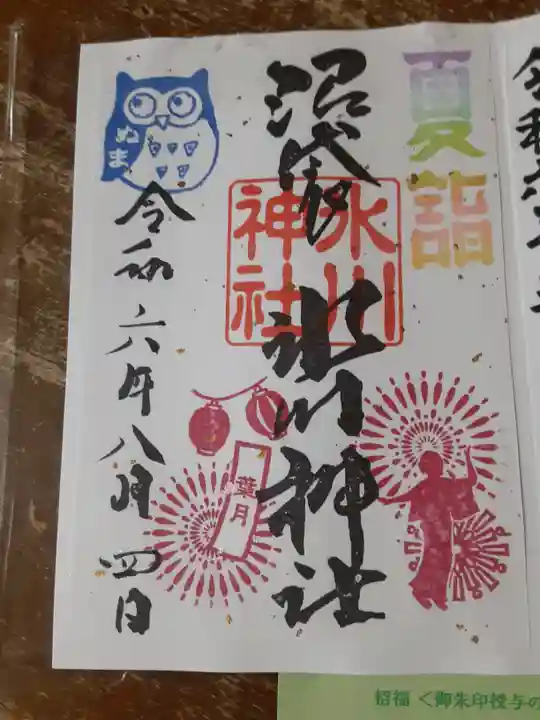 夏詣
沼袋 氷川神社
氷川
神社
ぬま
令和六年八月四日
葉月
令和六年
招福 く御朱印授与の